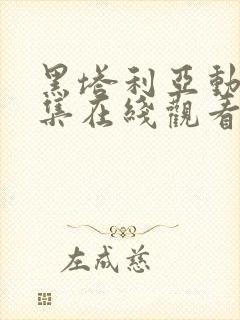 黑塔利亞動
集在綫觀看
左成慈